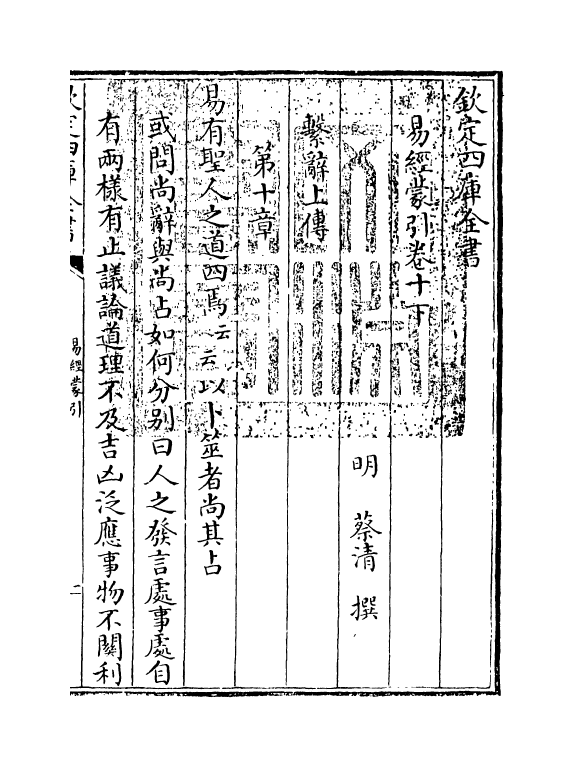 欽定四庫全書
易經蒙引卷十下
明　蔡清　撰
繫辭上傳
第十章
易有聖人之道四焉云云以卜筮者尚其占
或問尚辭與尚占如何分别曰人之發言處事處自
有兩様有止議論道理不及吉凶泛應事物不關利
易經蒙引
二